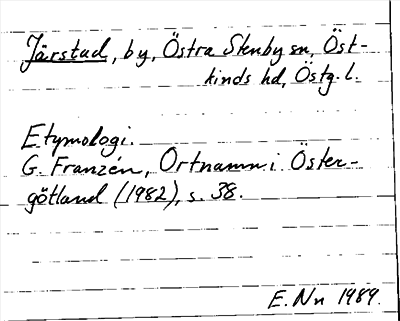 Järstad, by, Östra Stenby sn, Öst-
kinds hd, Östg. l.
Etymologi.
G. Franzén, Ortnamn i Öster-
götland (1982), s. 38.
E. Nn 1989.